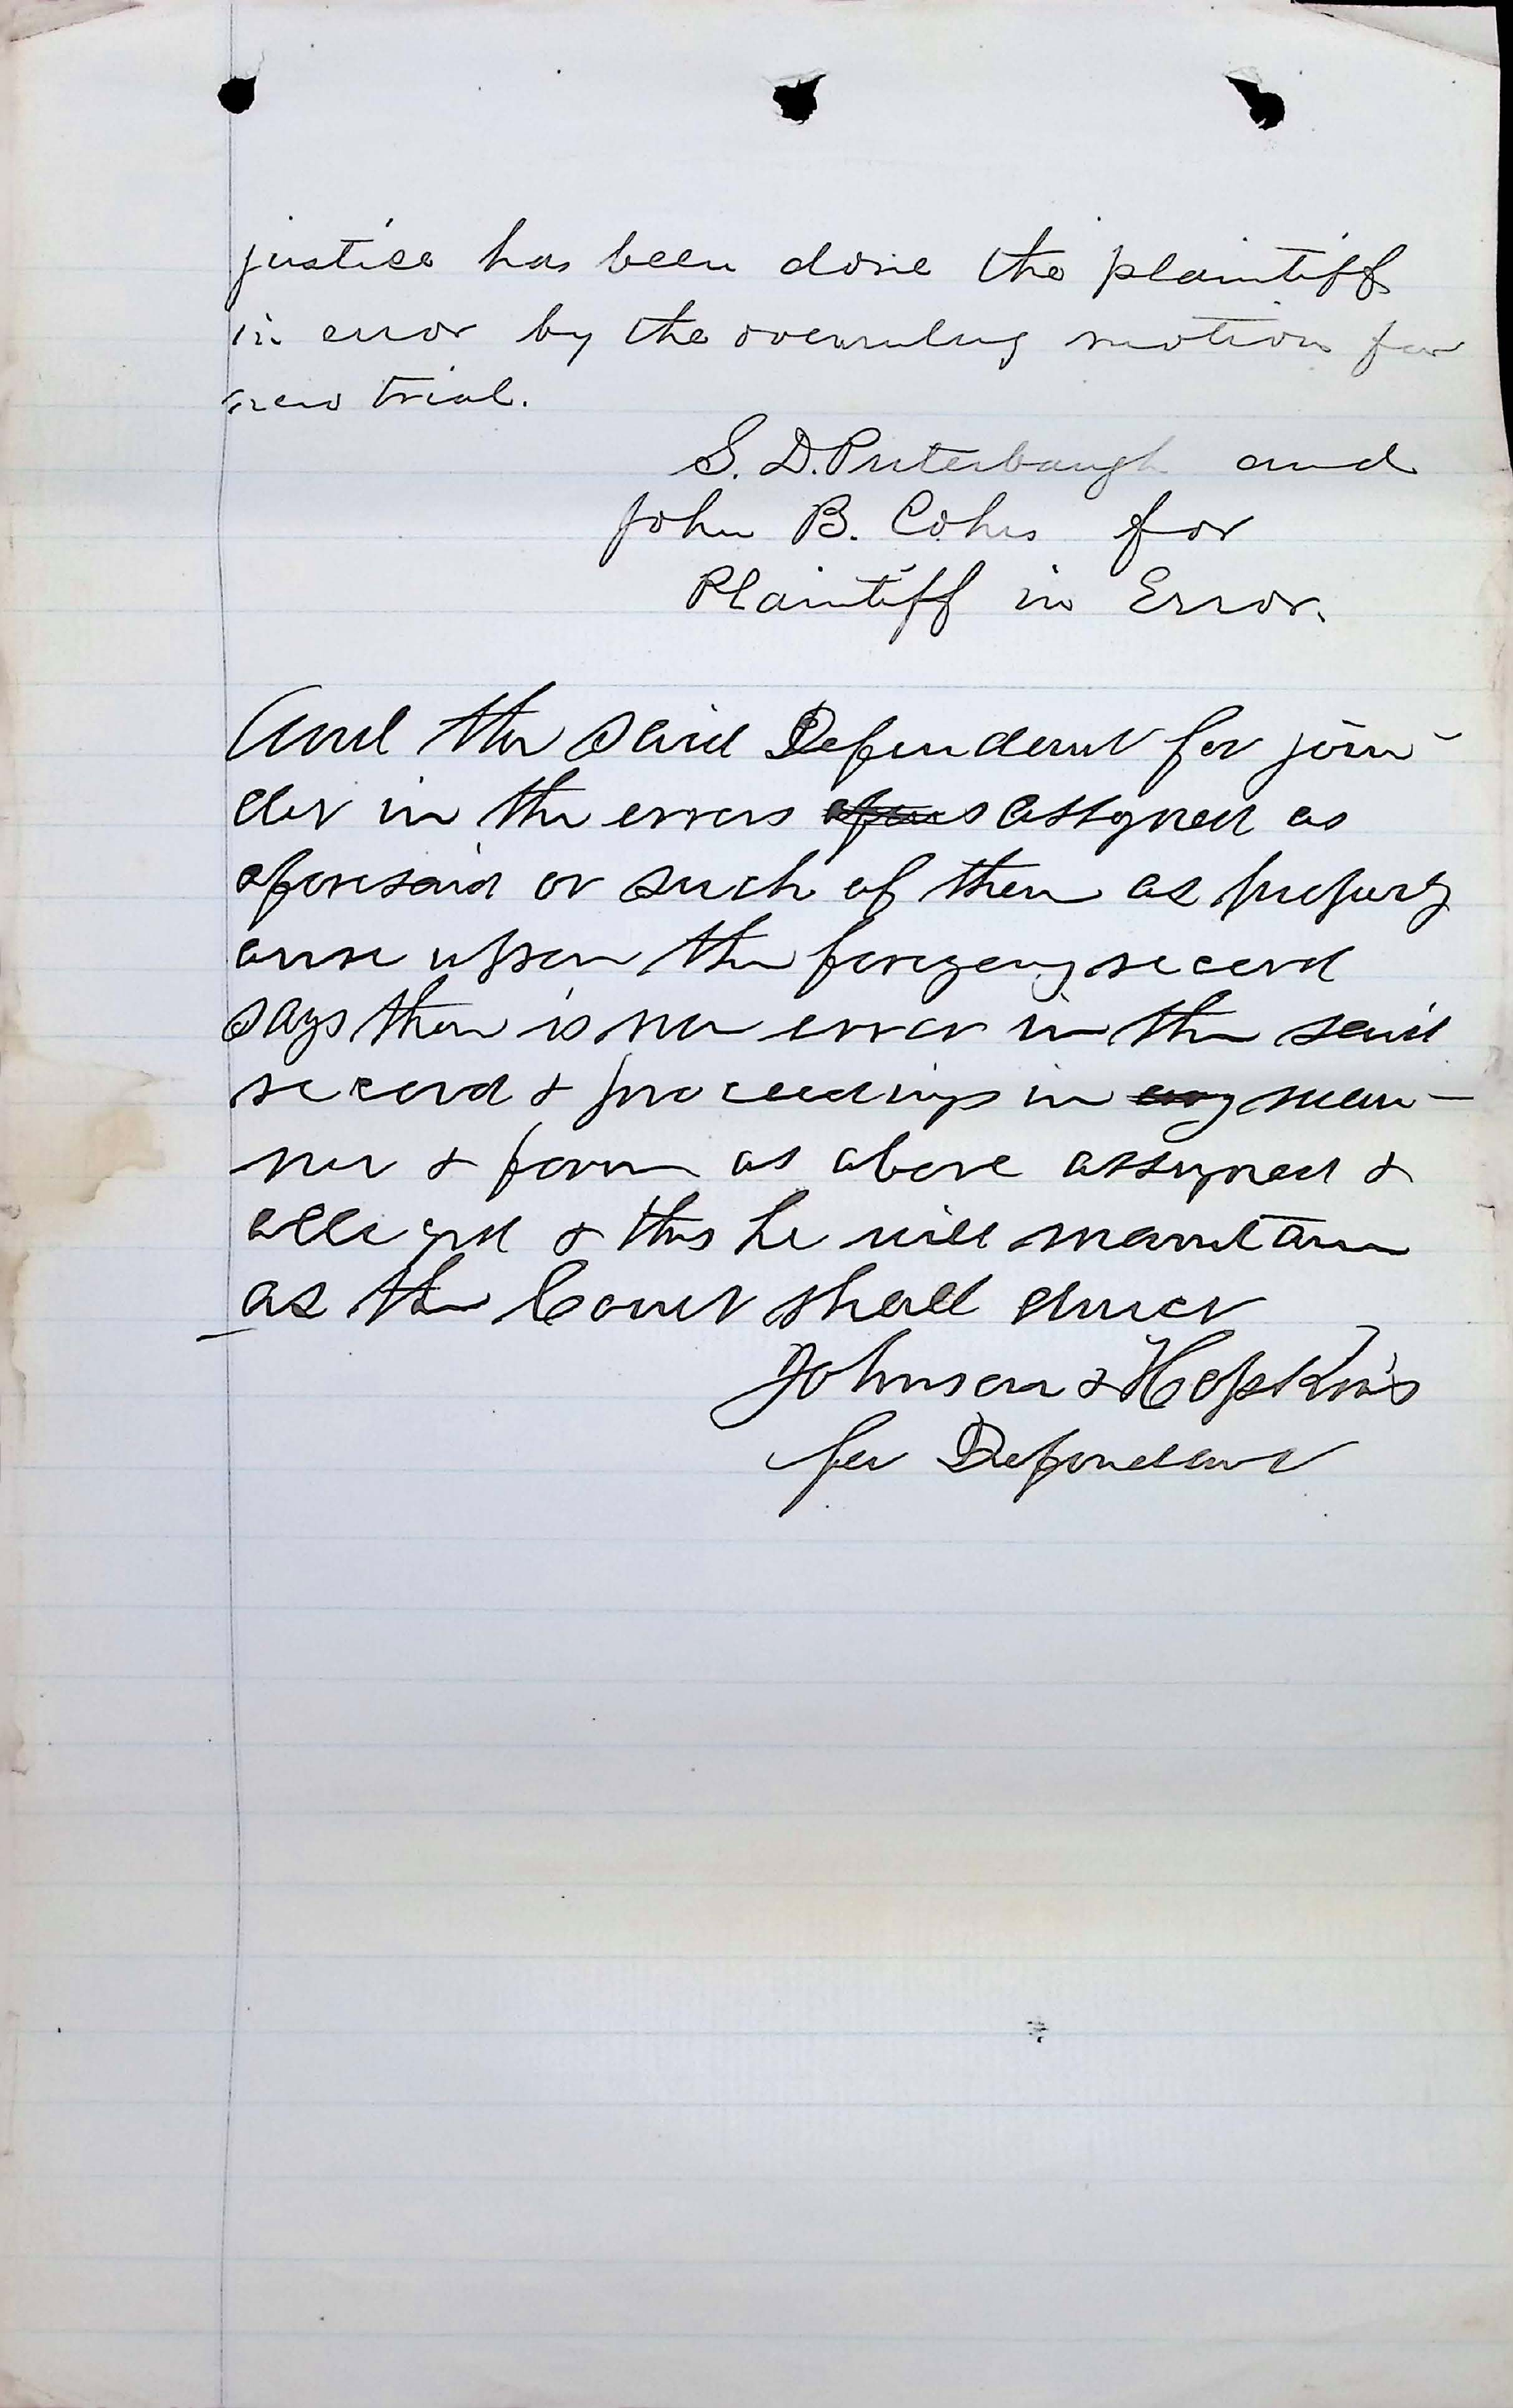 justice has been done the plaintiff
in error by the overruling motion for
new trial.
S. D. Puterbaugh and
John B. Cohrs for
Plaintiff in Error.
And the said Defendant for join-
der in the errors assigned as
aforesaid or such of them as properly
arise upon the foregoing record
says there is no error in the said
record & proceedings in man-
ner & form as above assigned &
alleged & this he will maintain
as the Court shall direct
Johnson & Hopkins
for Defendant